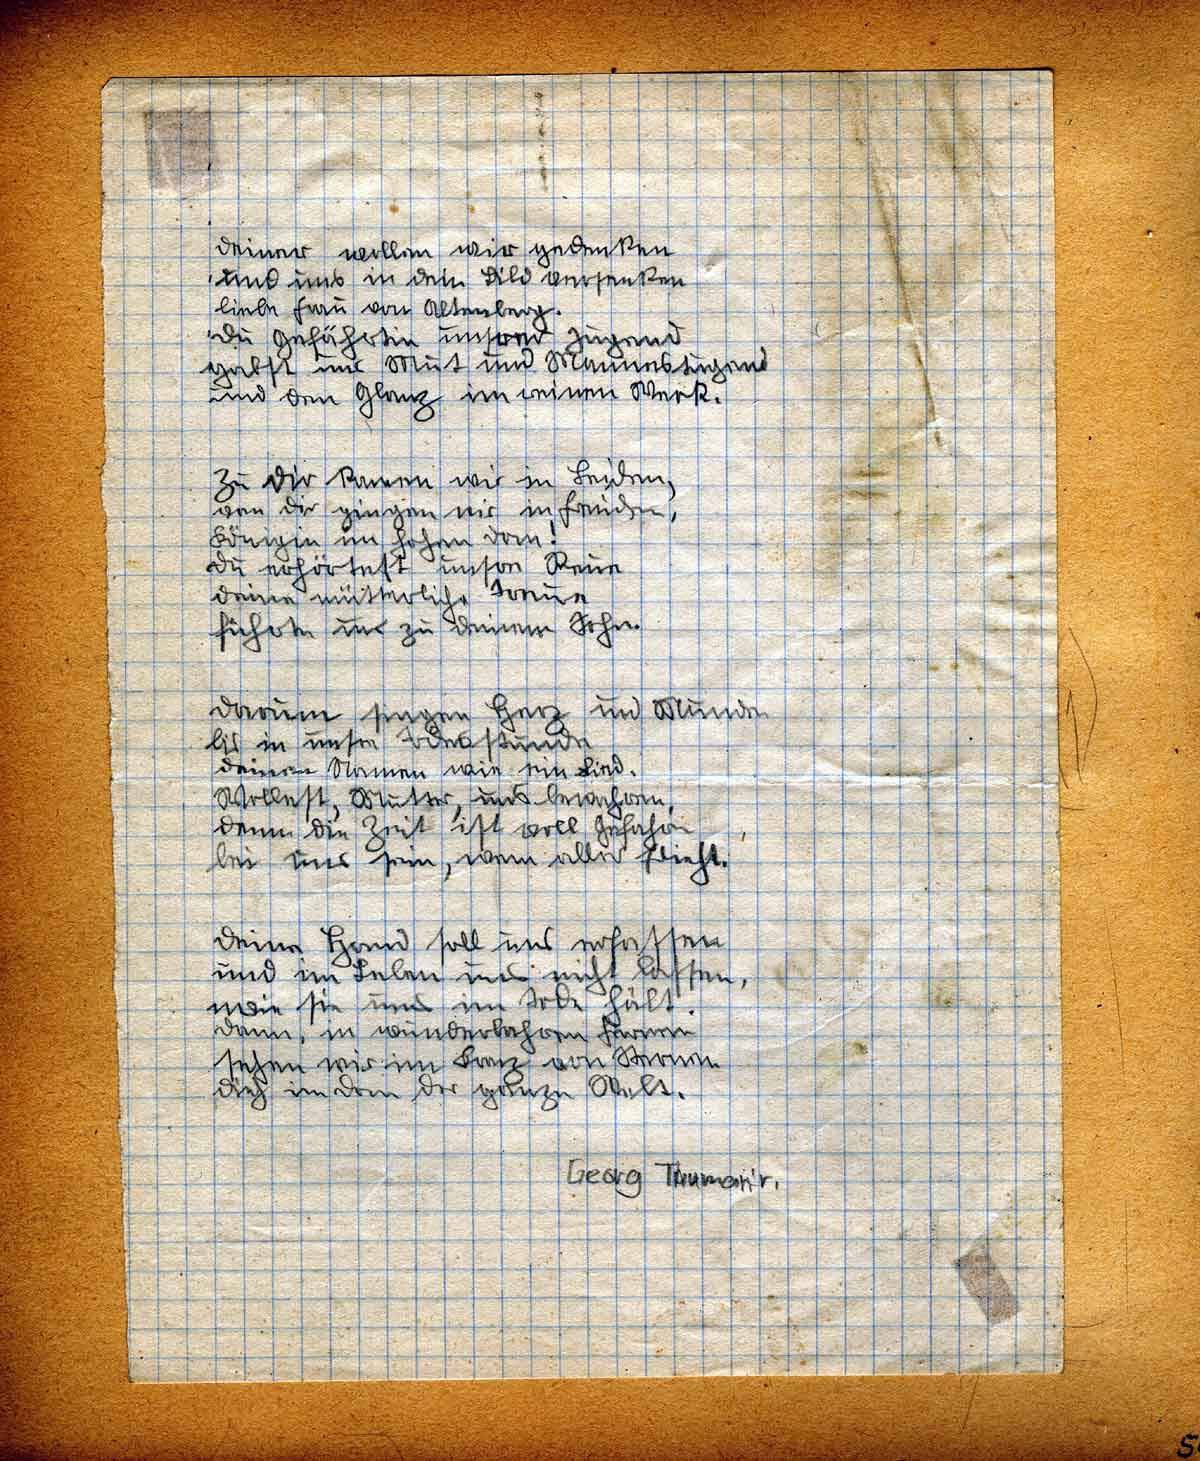 deiner wollen wir gedenken
und uns in dein Bild versenken
liebe Frau von Altenberg.
Du Gefährtin unsrer Jugend
gabst uns Mut und Mannestugend
und den Glanz im reinen Werk.
Zu dir kamen wir in Leiden,
von dir gingen wir in Freuden,
Königin im hohen Dom!
du erhörtest unsre Reue
deine mütterliche Treue
führte uns zu deinem Sohn.
darum singen Herz und Munde
bis in unsre Todesstunde
deinen Namen wie ein Lied.
Wollest, Mutter, uns bewahren,
denn die Zeit ist voll Gefahren
bei uns sein, wenn alles flieht.
deine Hand soll uns erfassen
und im Leben uns nicht lassen,
wie sie uns im Tode hält.
dann, in wunderbahren Fernen
sehen wir im Kranz von Sternen
dich im dom der ganzen Welt.
Georg